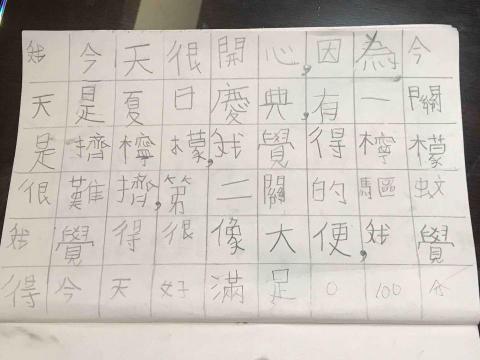 我今天很開心,因為,今
天是夏日慶典,有一關
是擠檸檬,我覺得檸檬
很難擠,第二關的驅蚊
我覺得很像大便,我覺
得今天好滿足0100分